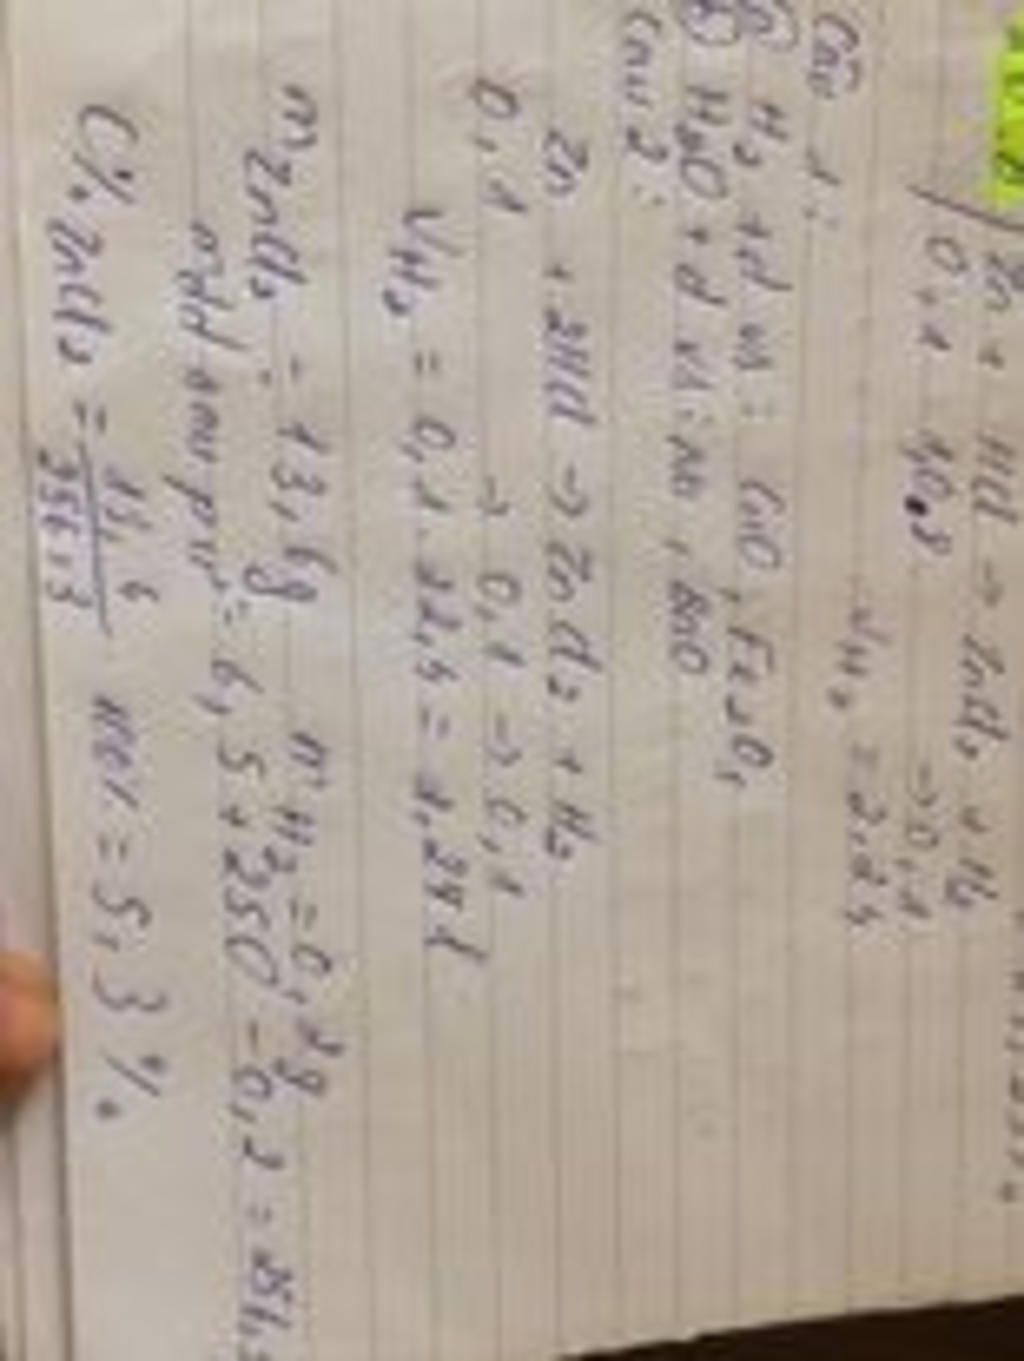 Zn + HCl → ZnCl₂ + H₂
0,1 → 0,1
VH₂ = 2,24
Câu 1:
a) H₂ + td vs: CuO, Fe₂O₃
b) H₂O + td vs: Na, BaO
Câu 2:
Zn + 2HCl → ZnCl₂ + H₂
0,1 → 0,1 → 0,1
VH₂ = 0,1. 22,4 = 2,24 l
mZnCl₂ = 13,6g mH₂ = 0,2g
mdd sau pư = 6,5 + 250 - 0,2 =
C% ZnCl₂ = 13,6 / 256,3 . 100% = 5,3 %